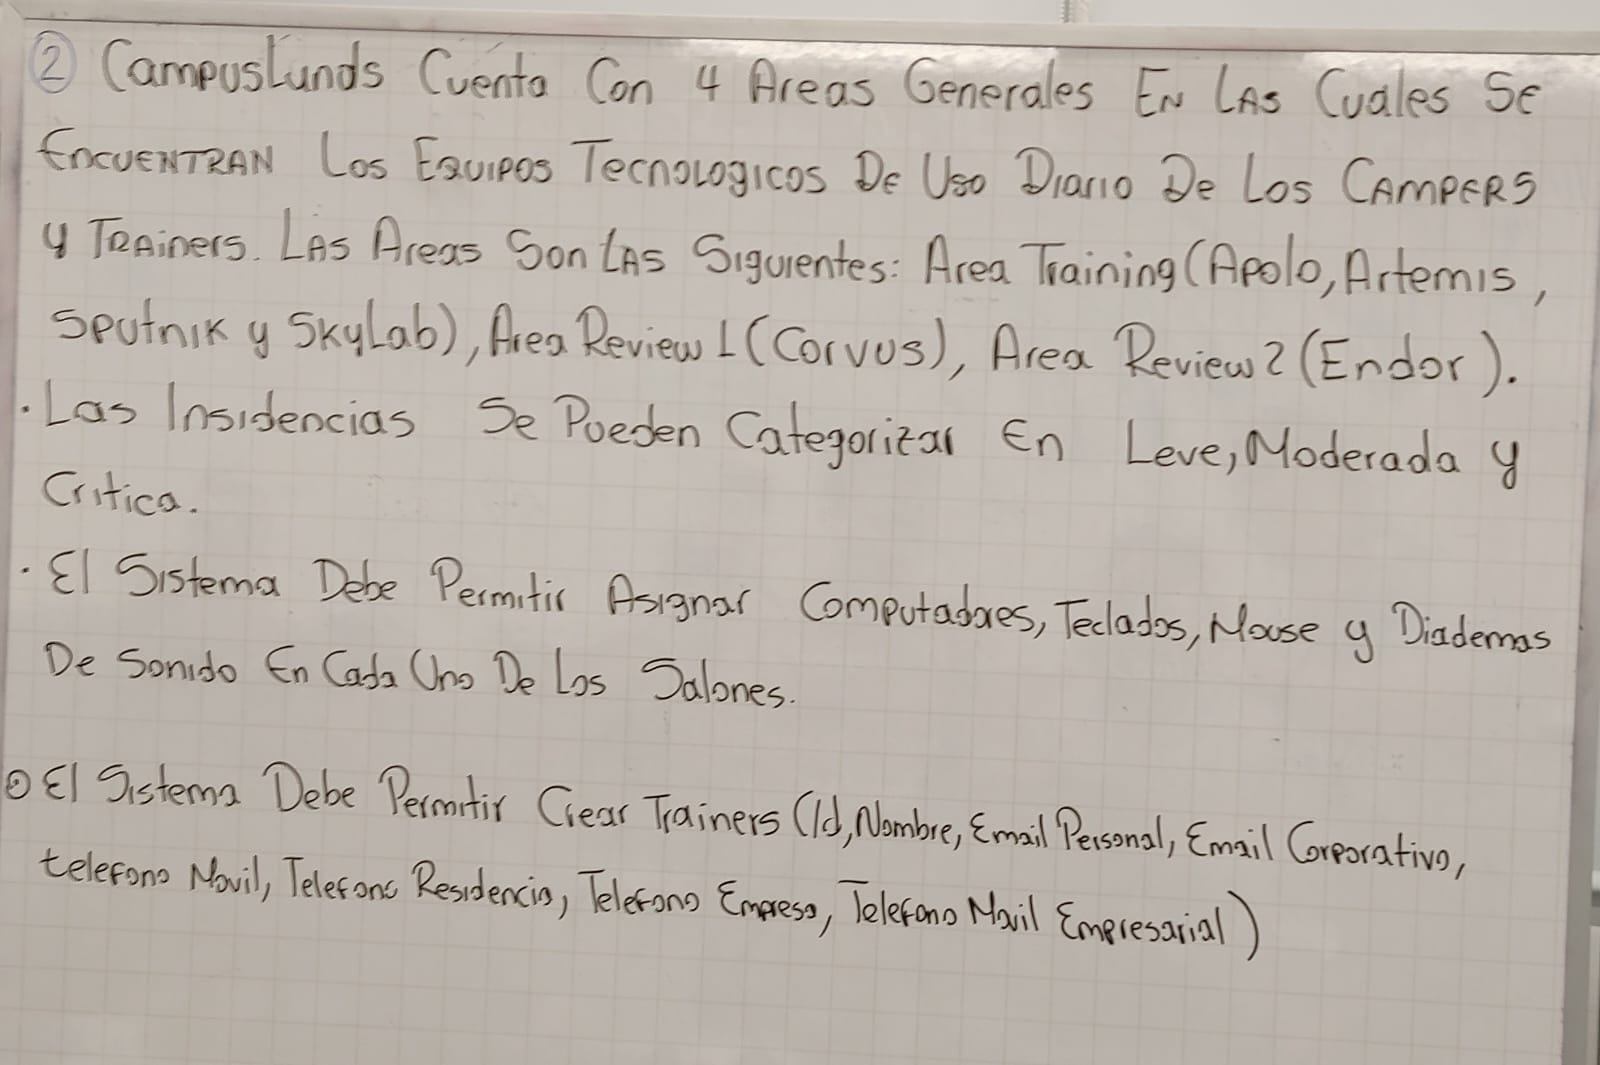 ② CampusLands Cuenta Con 4 Areas Generales En Las Cuales Se
Encuentran Los Equipos Tecnologicos De Uso Diario De Los Campers
y Trainers. Las Areas Son Las Siguientes: Area Training (Apolo, Artemis,
Sputnik y SkyLab), Area Review 1 (Corvus), Area Review 2 (Endor).
· Las Insidencias Se Pueden Categorizar En Leve, Moderada y
Critica.
· El Sistema Debe Permitir Asignar Computadores, Teclados, Mouse y Diademas
De Sonido En Cada Uno De Los Salones.
⊙ El Sistema Debe Permitir Crear Trainers (Id, Nombre, Email Personal, Email Corporativo,
telefono Movil, Telefono Residencia, Telefono Empresa, Telefono Movil Empresarial)